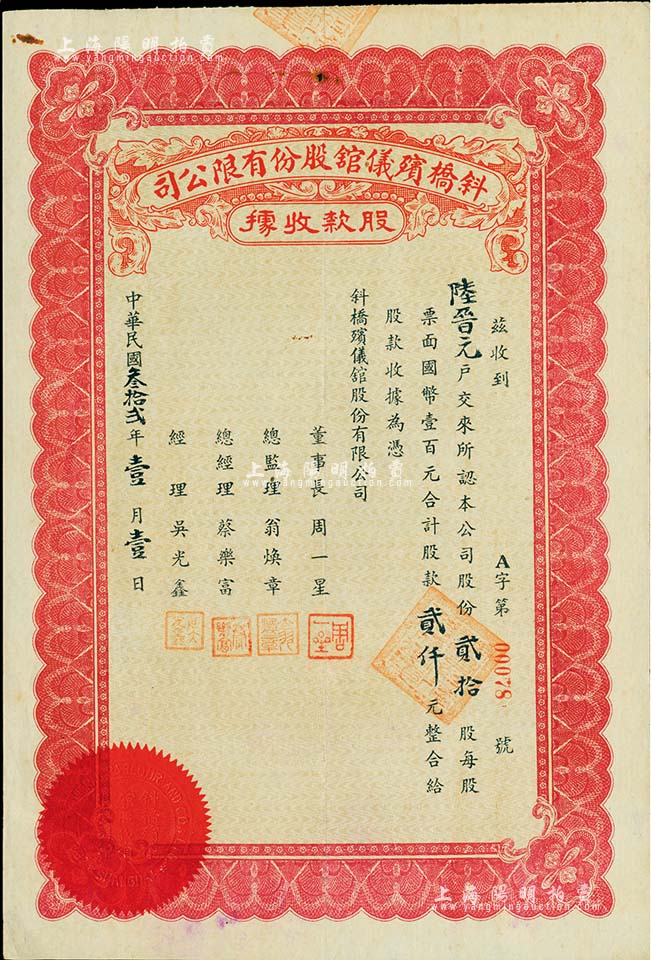 上海陽明拍賣
www.yangmingauction.com
斜橋殯儀舘股份有限公司
股款收據
A字第00078號
茲收到
陸晉元戶交來所認本公司股份貳拾股每股
票面國幣壹百元合計股款貳仟元整合給
股款收據為憑
斜橋殯儀舘股份有限公司
董事長周一星
總監理翁煥章
總經理蔡樂富
經理吳光鑫
中華民國叁拾弍年壹月壹日
上海陽明拍賣
www.yangmingauction.com
上海陽明拍賣
www.yangmingauction.com